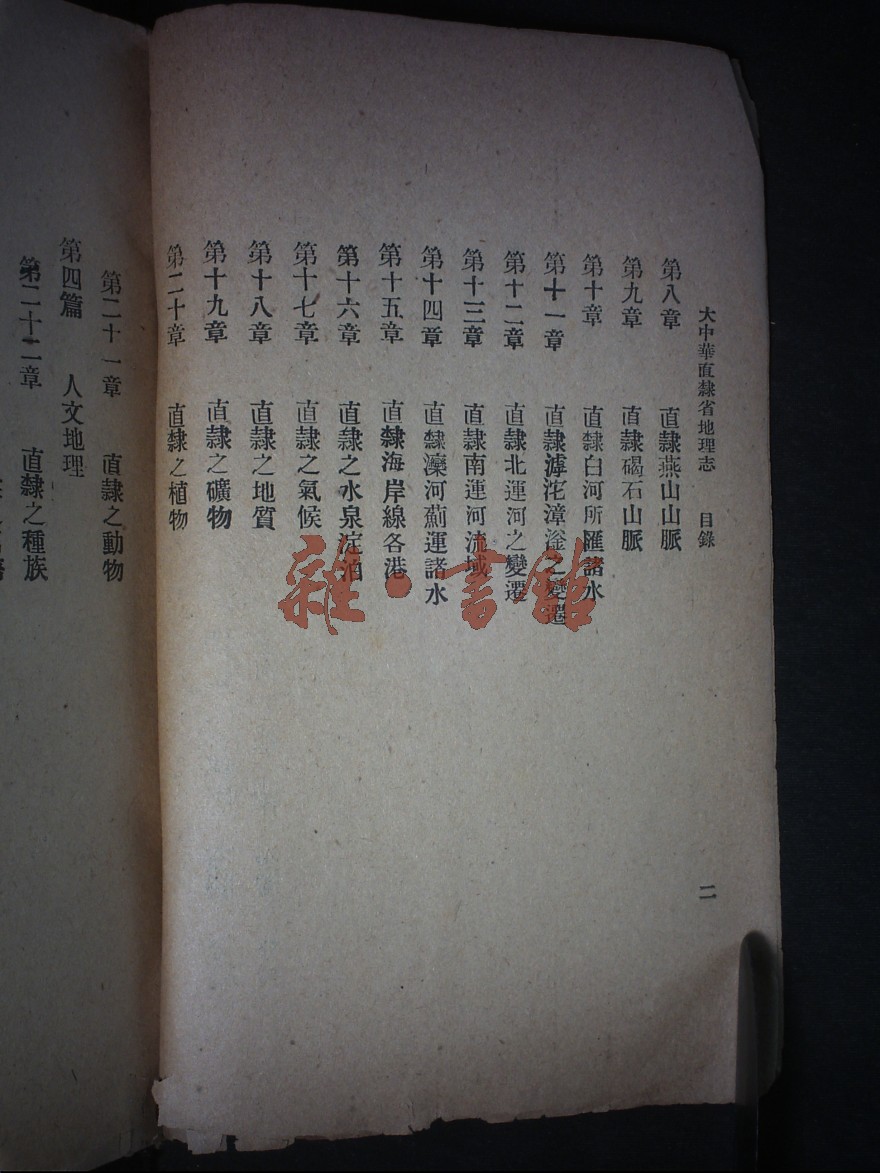 大中華直隸省地理志 目錄 二
第八章 直隸燕山山脈
第九章 直隸碣石山脈
第十章 直隸白河所匯諸水
第十一章 直隸滹沱漳滏之變遷
第十二章 直隸北運河之變遷
第十三章 直隸南運河流域
第十四章 直隸灤河薊運諸水
第十五章 直隸海岸線各港
第十六章 直隸之水泉淀泊
第十七章 直隸之氣候
第十八章 直隸之地質
第十九章 直隸之礦物
第二十章 直隸之植物
第二十一章 直隸之動物
第四篇 人文地理
第二十二章 直隸之種族
雜·書館